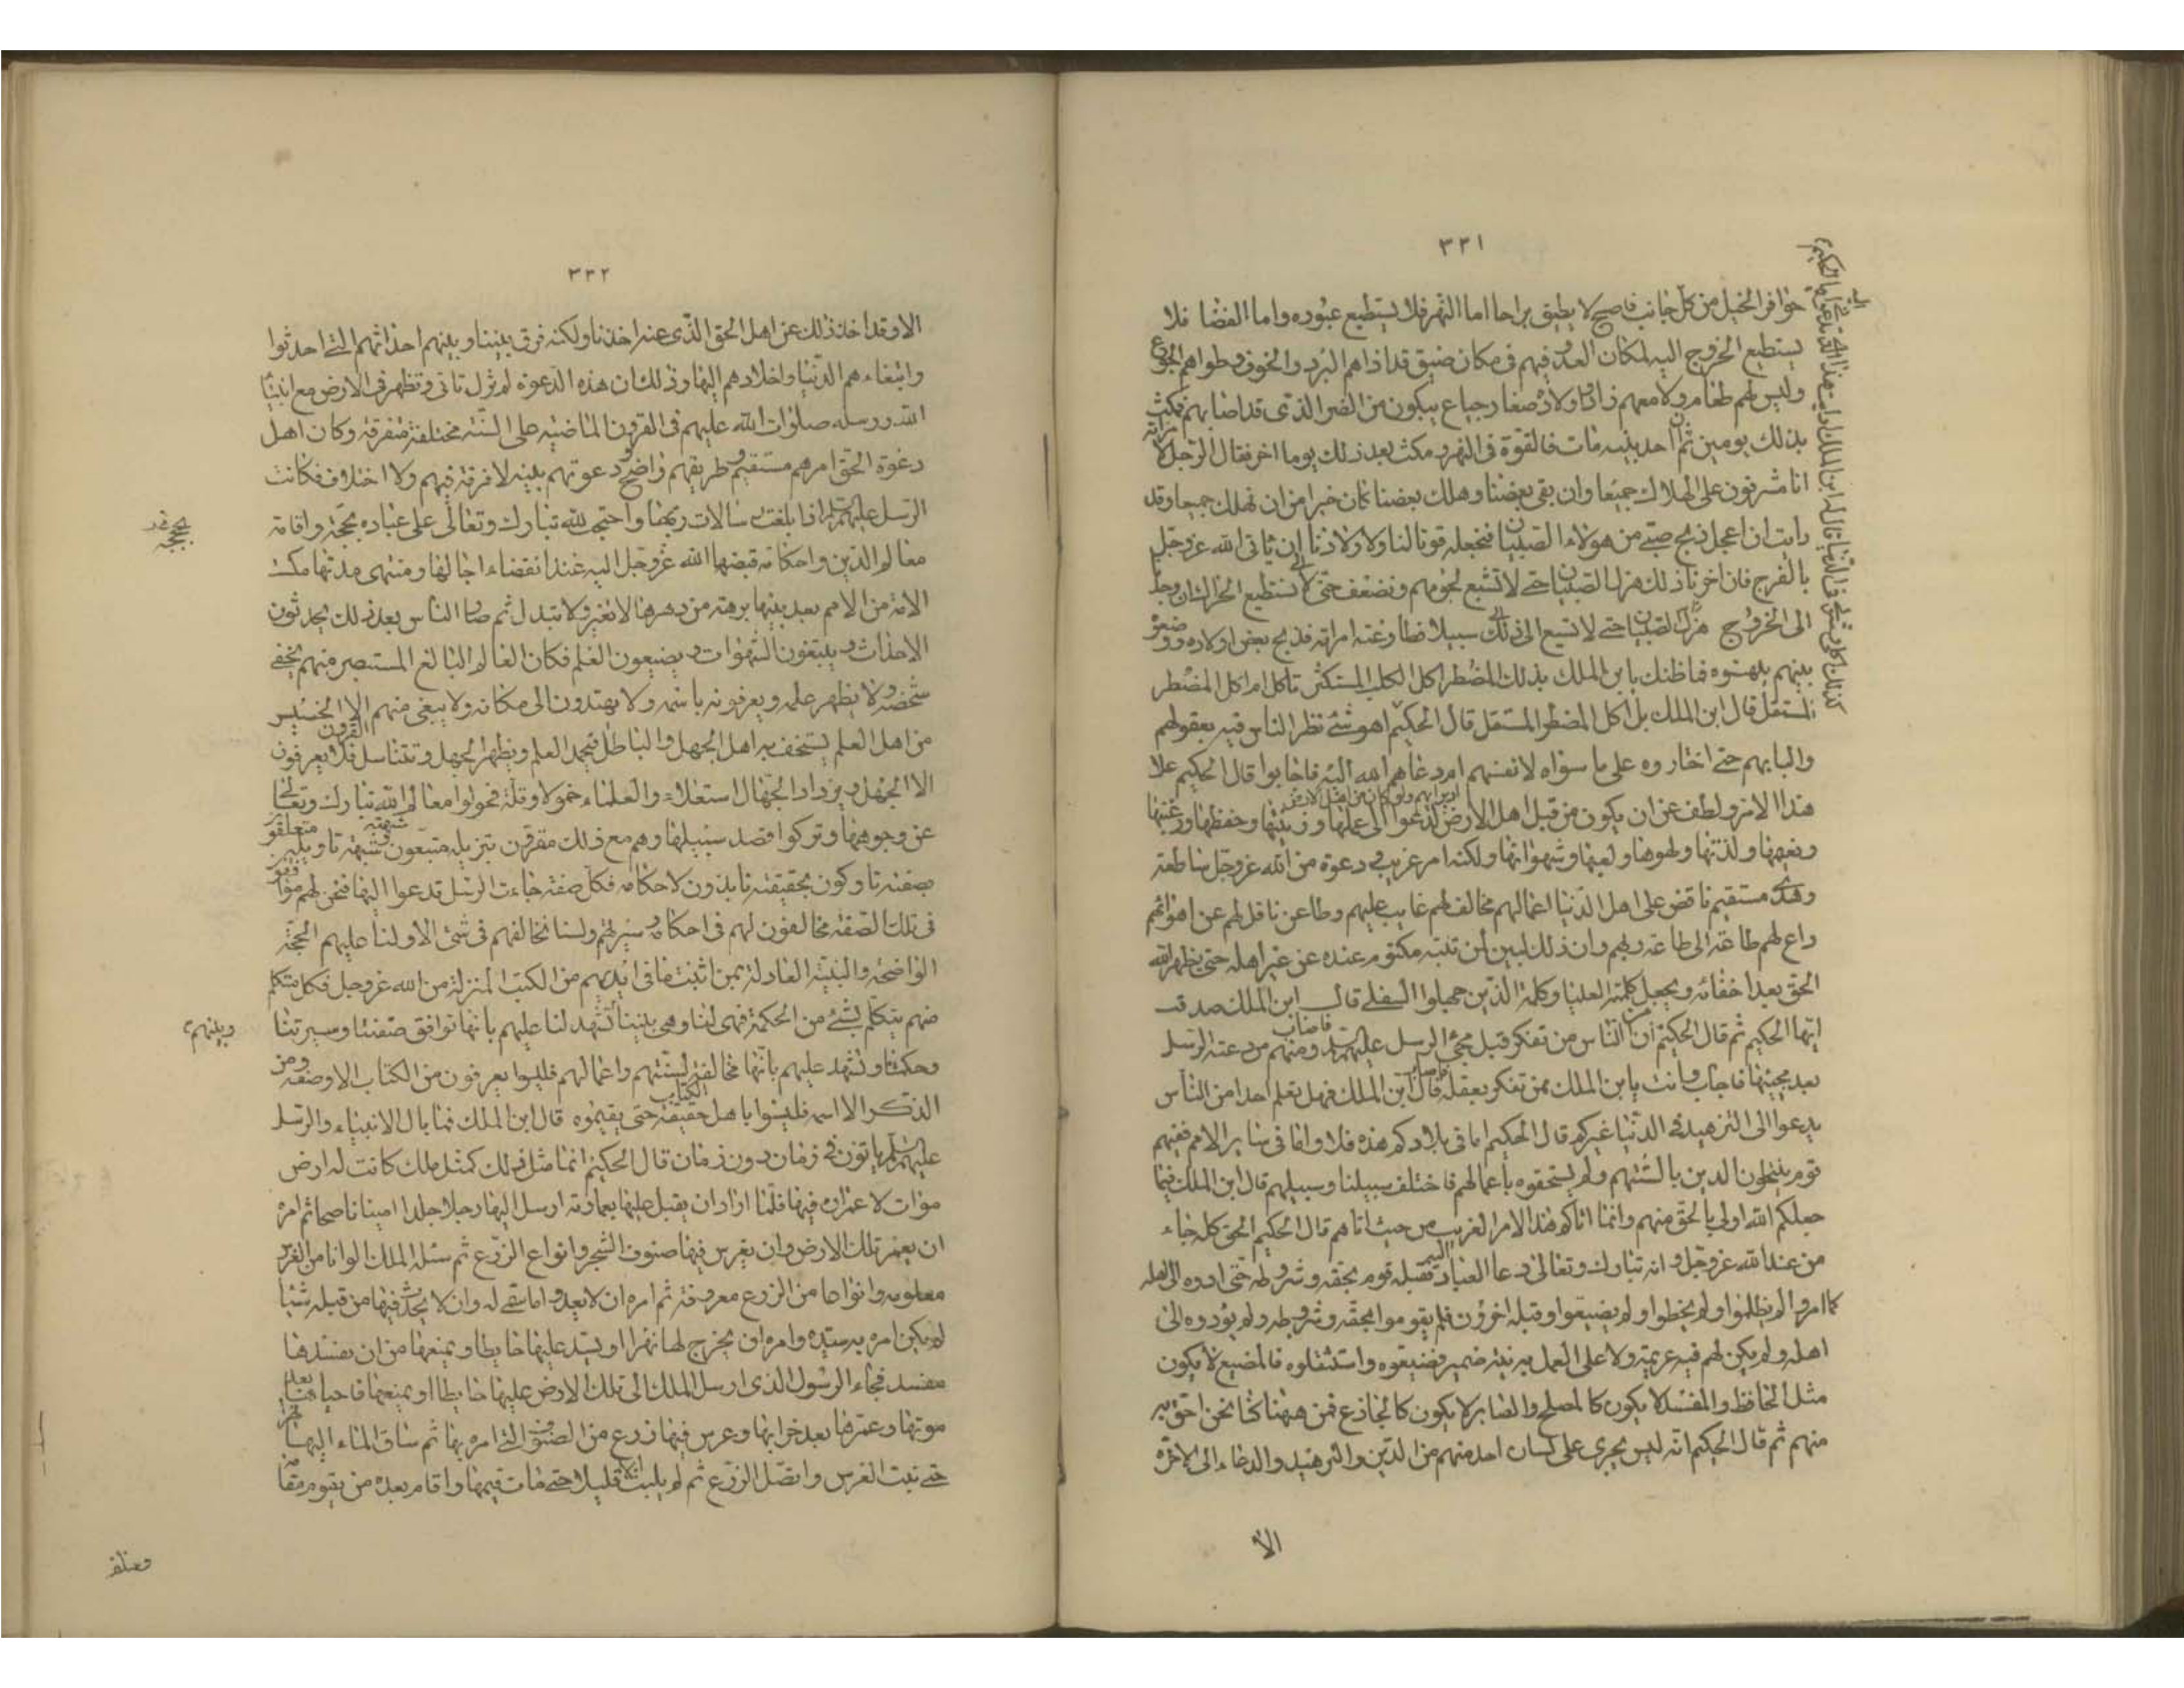 ٣٣١
حوافر الخيل من كل جانب فاصبح لا يطيق براحا اما النهر فلا يستطيع عبوره واما الفضا فلا
يستطيع الخروج اليه لمكان العدو فهم فى مكان ضيق قد اذاهم البرد والخوف وطواهم الجوع
وليس لهم طعام ولا معهم زاد واولاده صغار جياع يبكون من الضر الذى قد اصابهم فمكث
بذلك يومين ثم ان احد بنيه مات فالقوه فى النهر ومكث بعد ذلك يوما اخر فقال الرجل لامراته
انا مشرفون على الهلاك جميعا وان بقى بعضنا وهلك بعضنا كان خيرا من ان نهلك جميعا وقد
رايت ان اعجل ذبح صبى من هؤلاء الصبيان فنجعله قوتا لنا ولاولادنا الى ان ياتى الله عز وجل
بالفرج فان اخرنا ذلك هزل الصبيان حتى لا تشبع لحومهم ونضعف حتى لا نستطيع الحركة ان وجدنا
الى الخروج هزل الصبيان حتى لا نسيع الى ذلك سبيلا فطاوعته امراته فذبح بعض اولاده ووضعوه
بينهم ينهشوه فما ظنك يا بن الملك بذلك المضطر اكل الكلب المستكثر تاكل ام اكل المضطر
المستقل قال ابن الملك بل اكل المضطر المستقل قال الحكيم اهو شئ نظر الناس فيه بعقولهم
والبابهم حتى اختاروه على ما سواه لانفسهم ام دعاهم الله اليه فاجابوا قال الحكيم علا
هذا الامر ولطف عن ان يكون من قبل اهل الارض لدعوا الى عملها وزينتها وحفظها ورغبتها
ونعيمها ولذتها ولهوها ولعبها وشهواتها ولكنه امر غريب ودعوة من الله عز وجل ساطعة
وهدى مستقيم ناقض على اهل الدنيا اعمالهم مخالف لهم عايب عليهم وطاعن ناقل لهم عن اهوائهم
داع لهم طاعته الى طاعة ربهم وان ذلك لبين لمن تنبه مكتوم عنده عن غير اهله حتى يظهر الله
الحق بعد اخفائه ويجعل كلمته العليا وكلمة الذين جهلوا السفلى قال ابن الملك صدقت
ايها الحكيم ثم قال الحكيم ان من الناس من تفكر قبل مجئ الرسل عليهم السلم فاصاب ومنهم من دعته الرسل
بعد مجيئها فاجاب وانت يا بن الملك ممن تفكر بعقله فاصاب قال ابن الملك فهل تعلم احدا من الناس
يدعوا الى التزهيد فى الدنيا غيركم قال الحكيم اما فى بلادكم هذه فلا واما فى ساير الامم ففيهم
قوم ينتحلون الدين بالسنتهم ولم يستحقوه باعمالهم فاختلف سبيلنا وسبيلهم قال ابن الملك فبما
جعلكم الله اولى بالحق منهم وانما اتاكم هذا الامر الغريب من حيث اتاهم قال الحكيم الحق كله جاء
من عند الله عز وجل وانه تبارك وتعالى دعا العباد اليه فقبله قوم بحقه وشروطه حتى ادوه الى اهله
كما امروا لم يظلموا ولم يخطوا ولم يضيعوا وقبله اخرون فلم يقوموا بحقه وشروطه ولم يؤدوه الى
اهله ولم يكن لهم فيه عزيمة ولا على العمل به نية ضمير فضيعوه واستثقلوه فالمضيع لا يكون
مثل الحافظ والمفسد لا يكون كالمصلح والصابر لا يكون كالجازع فمن ههنا كنا نحن احق به
منهم ثم قال الحكيم انه ليس يجرى على لسان احد منهم من الدين والتزهيد والدعاء الى الاخرة
الا
٣٣٢
الا وقد اخذ ذلك عن اهل الحق الذى عنه اخذنا ولكنه فرق بيننا وبينهم احداثهم التى احدثوا
وابتغاءهم الدنيا واخلادهم اليها وذلك ان هذه الدعوة لم تزل تاتى وتظهر فى الارض مع انبياء
الله ورسله صلوات الله عليهم فى القرون الماضيه على السنة مختلفة متفرقة وكان اهل
دعوة الحق امرهم مستقيم وطريقهم واضح ودعوتهم بينه لا فرقة فيهم ولا اختلاف فكانت
الرسل عليهم السلم اذا بلغت رسالات ربها واحتج لله تبارك وتعالى على عباده بحجة واقامة
معالم الدين واحكامه قبضها الله عز وجل اليه عند انقضاء اجالها ومنتهى مدتها مكث
الامة من الامم بعد نبيها برهة من دهرها لا تغير ولا تبدل ثم صار الناس بعد ذلك يحدثون
الاحداث ويبتغون الشهوات ويضيعون العلم فكان العالم البالغ المستبصر منهم يخفى
شخصه ولا يظهر علمه ويعرفونه باسمه ولا يهتدون الى مكانه ولا يبقى منهم الا الخسيس
من اهل العلم يستخف به اهل الجهل والباطل فيخمل العلم ويظهر الجهل وتتناسل القرون فلا يعرفون
الا الجهل ويزداد الجهال استعلاء والعلماء خمولا وقلة فحولوا معالم الله تبارك وتعالى
عن وجوهها وتركوا قصد سبيلها وهم مع ذلك مقرون بتنزيله متبعون شبهه تاويله متعلقو
بصفته تاركون بحقيقته نابذون لاحكامه فكل صفة جاءت الرسل تدعوا اليها فنحن لهم موافقو
فى تلك الصفة مخالفون لهم فى احكامهم وسيرتهم ولسنا نخالفهم فى شئ الا ولنا عليهم الحجة
الواضحة والبينة العادلة بمن اثبت ما فى ايديهم من الكتب المنزلة من الله عز وجل فكل متكلم
منهم يتكلم بشئ من الحكمة فهى لنا وهى بيننا تشهد لنا عليهم بانها توافق صفتنا وسيرتنا
وحكمنا وتشهد عليهم بانها مخالفة لسنتهم واعمالهم فليسوا يعرفون من الكتاب الا وصفه ومن
الذكر الا اسمه فليسوا باهل الكتاب حقيقة حتى يقيموه قال ابن الملك فما بال الانبياء والرسل
عليهم السلم ياتون فى زمان دون زمان قال الحكيم انما مثل ذلك كمثل ملك كانت له ارض
موات لا عمران فيها فلما اراد ان يقبل عليها بعمارته ارسل اليها رجلا جلدا امينا ناصحا ثم امره
ان يعمر تلك الارض وان يغرس فيها صنوف الشجر وانواع الزرع ثم سئله الملك الوانا من الغرس
معلومه وانواعا من الزرع معروفة ثم امره ان لا يعدو ما سمى له وان لا يحدث فيها من قبله شيئا
لم يكن امره به سيده وامره ان يخرج لها نهرا ويشد عليها حايطا ويمنعها من ان يفسدها
مفسد فجاء الرسول الذى ارسل الملك الى تلك الارض عليها حايطا او يمنعها فاحياها بعد
موتها وعمرها بعد خرابها وغرس فيها وزرع من الصنوف التى امره بها ثم ساق الماء اليها نهر
حتى نبت الغرس واتصل الزرع ثم لم يلبث الا قليلا حتى مات قيمها واقام بعده من يقوم مقامه
وبينهم